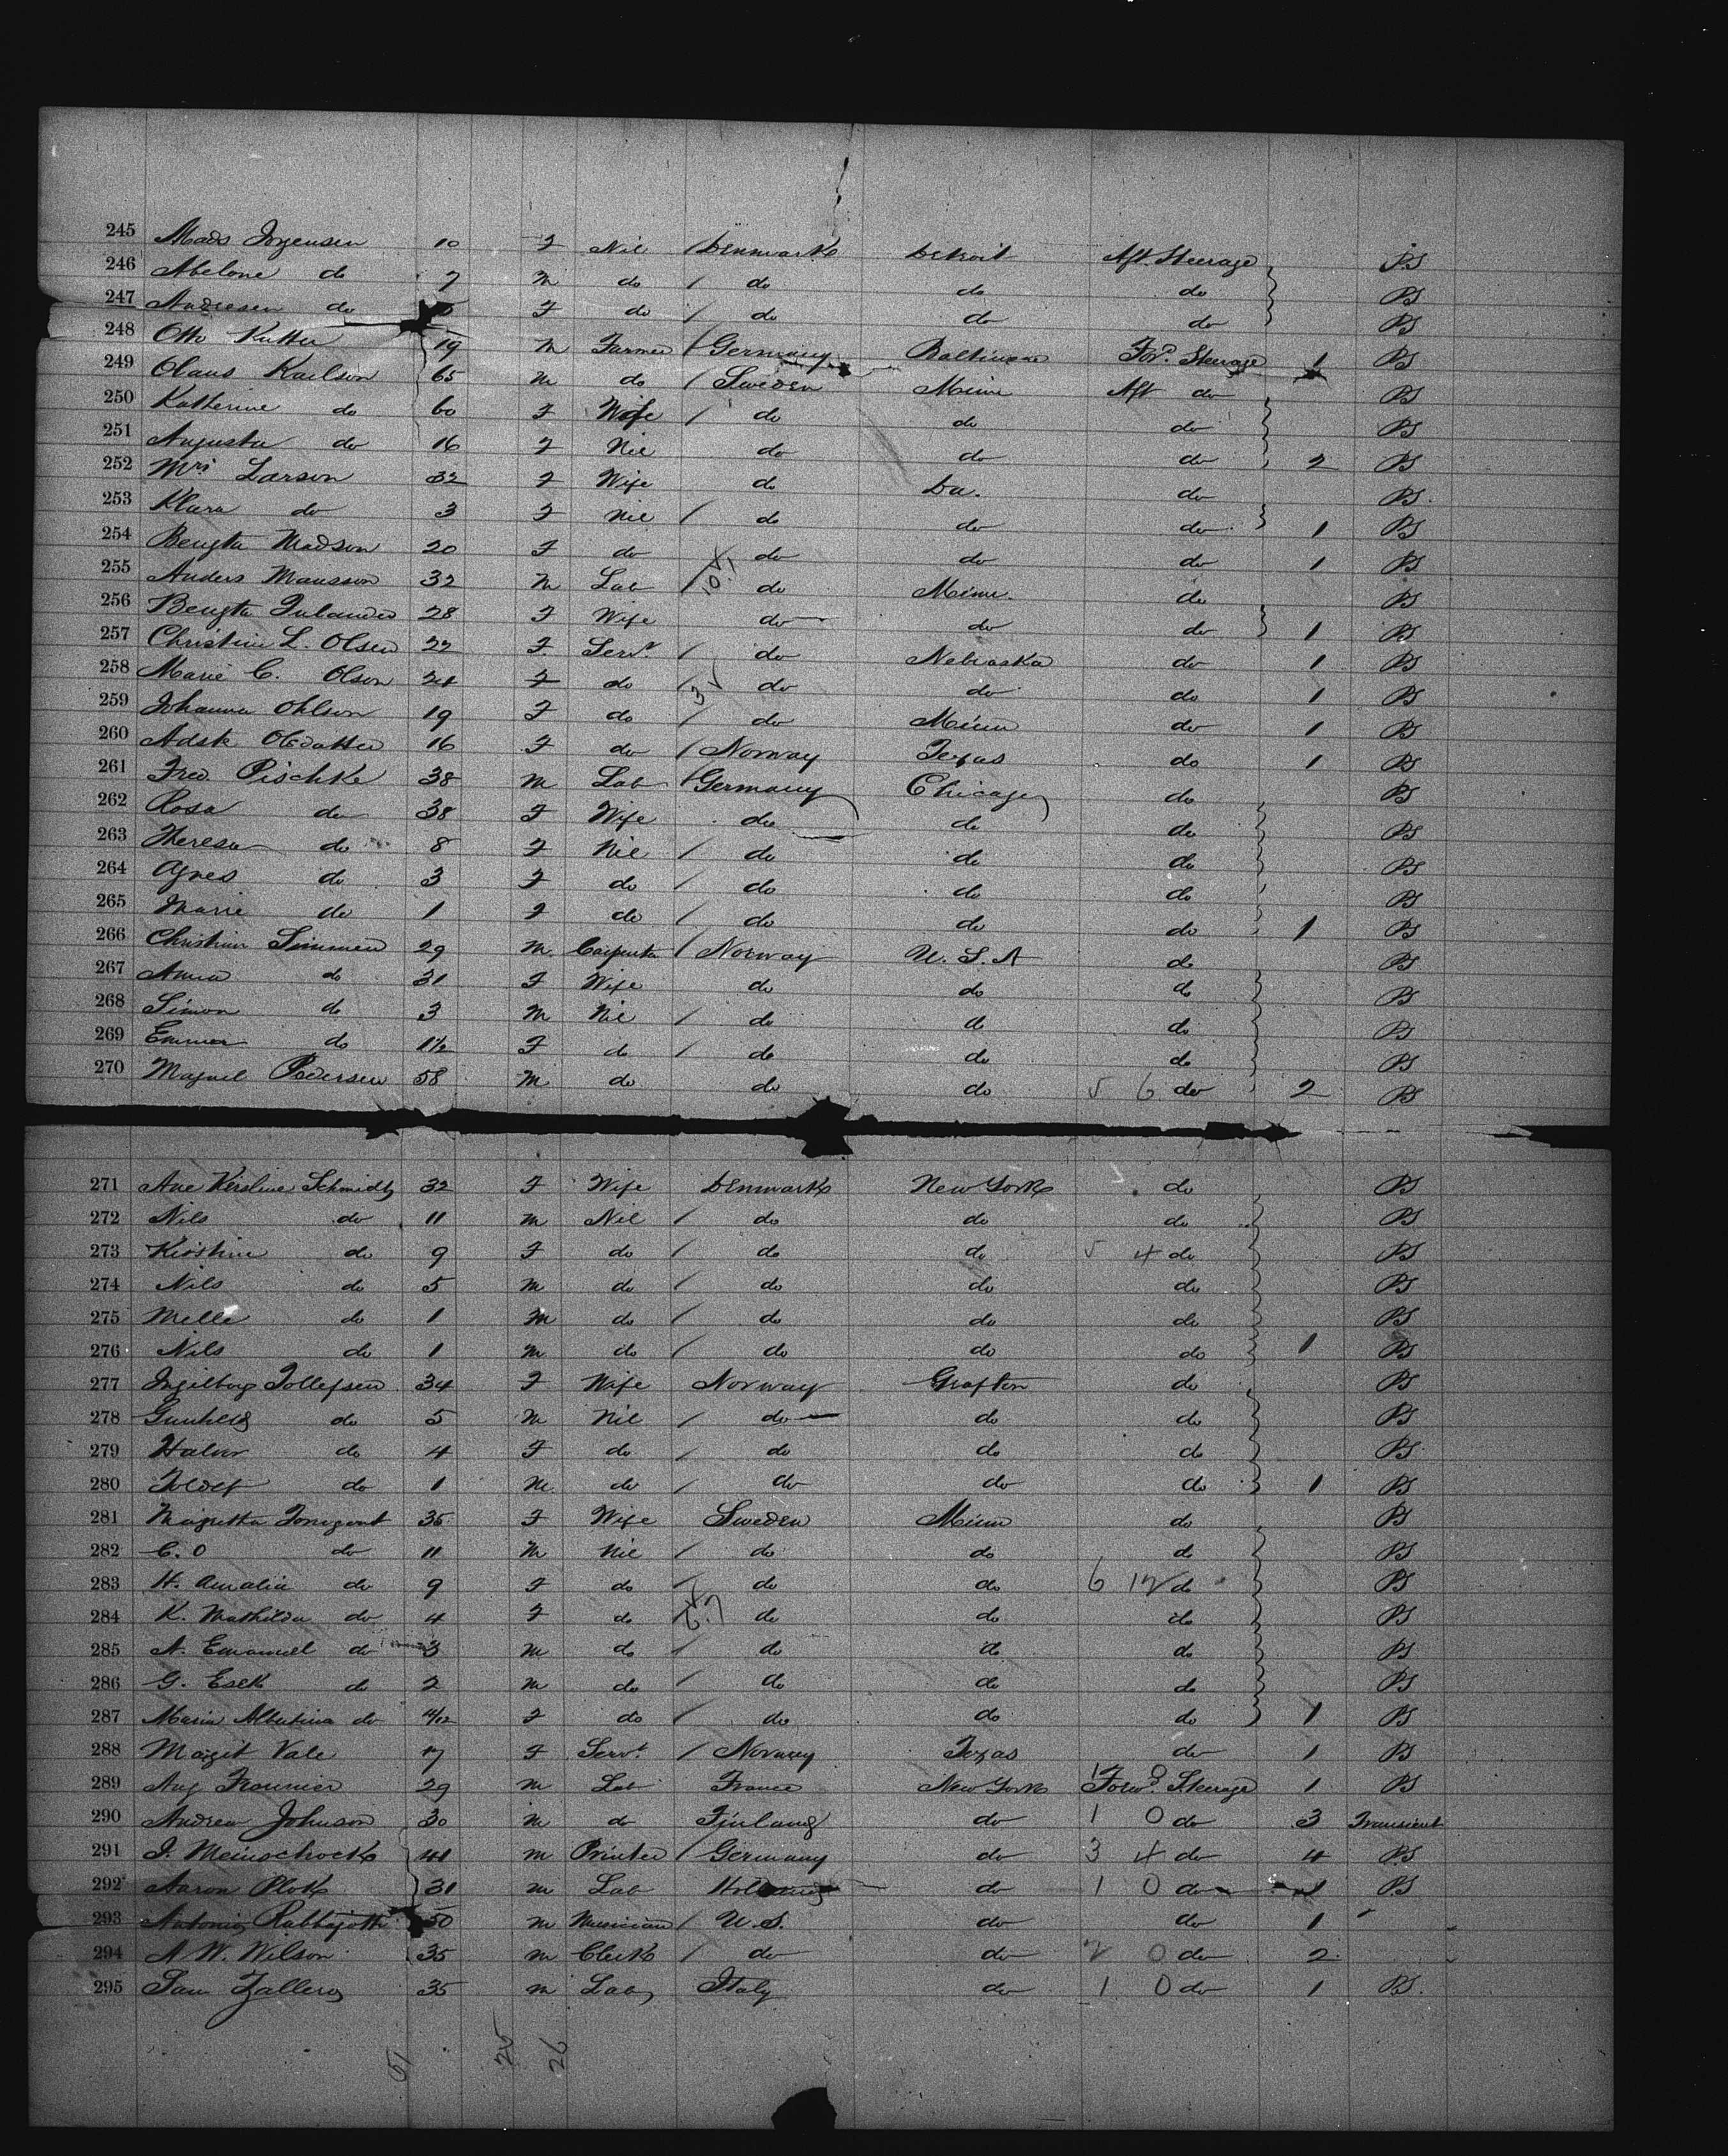 245 Mads Jorgensen 10 F Nil / Denmark Detroit Aft. Steerage PS
246 Abelone do 7 M do / do do do PS
247 Andresen do F do / do do do PS
248 Otto Kutter 19 M Farmer / Germany Baltimore For'd. Steerage 1 PS
249 Olaus Karlson 65 M do / Sweden Minn Aft do PS
250 Katherine do 60 F Wife / do do do PS
251 Augusta do 16 F Nil do do do 2 PS
252 Mrs Larson 32 F Wife do Da. do PS
253 Klara do 3 F Nil / do do do 1 PS
254 Bengta Madson 20 F do do do do 1 PS
255 Anders Mansson 32 M Lab / do Minn. do PS
256 Bengta 28 F Wife do do do 1 PS
257 Christine L. Olsen 22 F Servt / do Nebraska do 1 PS
258 Marie C. Olson 24 F do / do do do 1 PS
259 Johanna Ohlson 19 F do / do Minn do 1 PS
260 Adsk Olsdatter 16 F do / Norway Texas do 1 PS
261 Fred. Pischke 38 M Lab / Germany Chicago do PS
262 Rosa do 38 F Wife do do do PS
263 Theresa do 8 F Nil / do do do PS
264 Agnes do 3 F do / do do do PS
265 Marie do 1 F do / do do do 1 PS
266 Christian Simmen 29 M. Carpenter / Norway U. S. A do PS
267 Anna do 31 F Wife do do do PS
268 Simon do 3 M Nil / do do do PS
269 Emma do 1½ F do / do do do PS
270 Magnil Pedersen 58 M do do do 5 6 do 2 PS
271 Ane Kirsline Schmidt 32 F Wife Denmark New York do PS
272 Nils do 11 M Nil / do do do PS
273 Kirstine do 9 F do / do do 5 4 do PS
274 Nils do 5 M do / do do do PS
275 Melle do 1 M do / do do do PS
276 Nils do 1 M do / do do do 1 PS
277 Ingilborg Tollefsen 34 F Wife Norway Grafton do PS
278 Gunheld do 5 M Nil / do do do PS
279 Halvor do 4 F do / do do do PS
280 Toldef do 1 M. do / do do do 1 PS
281 35 F Wife Sweden Minn do PS
282 C. O do 11 M Nil / do do do PS
283 H. Amalia do 9 F do / do do 6 12 do PS
284 K. Mathilda do 4 F do / do do do PS
285 A. Emanuel do 3 M do / do do do PS
286 G. Eselk do 2 M do / do do do PS
287 Maria Albertina do 4/12 F do / do do do 1 PS
288 Magit Vale 17 F Servt / Norway Texas do 1 PS
289 Aug Frounier 29 M Lab France New York Forwd. Steerage 1 PS
290 Andrew Johnson 30 M do Finland do 1 0 do 3 Transient
291 J. Meinschock 41 M Printer / Germany do 3 4 do 4 PS
292 Aaron Plok 31 M Lab Holland do 1 0 do 1 PS
293 Antonio 50 M Musician / U. S. do do 1
294 A W. Wilson 35 M Clerk / do do 2 0 do 2
295 Sam Zallero 35 M Lab Italy do 1 0 do 1 PS.
51 25 26